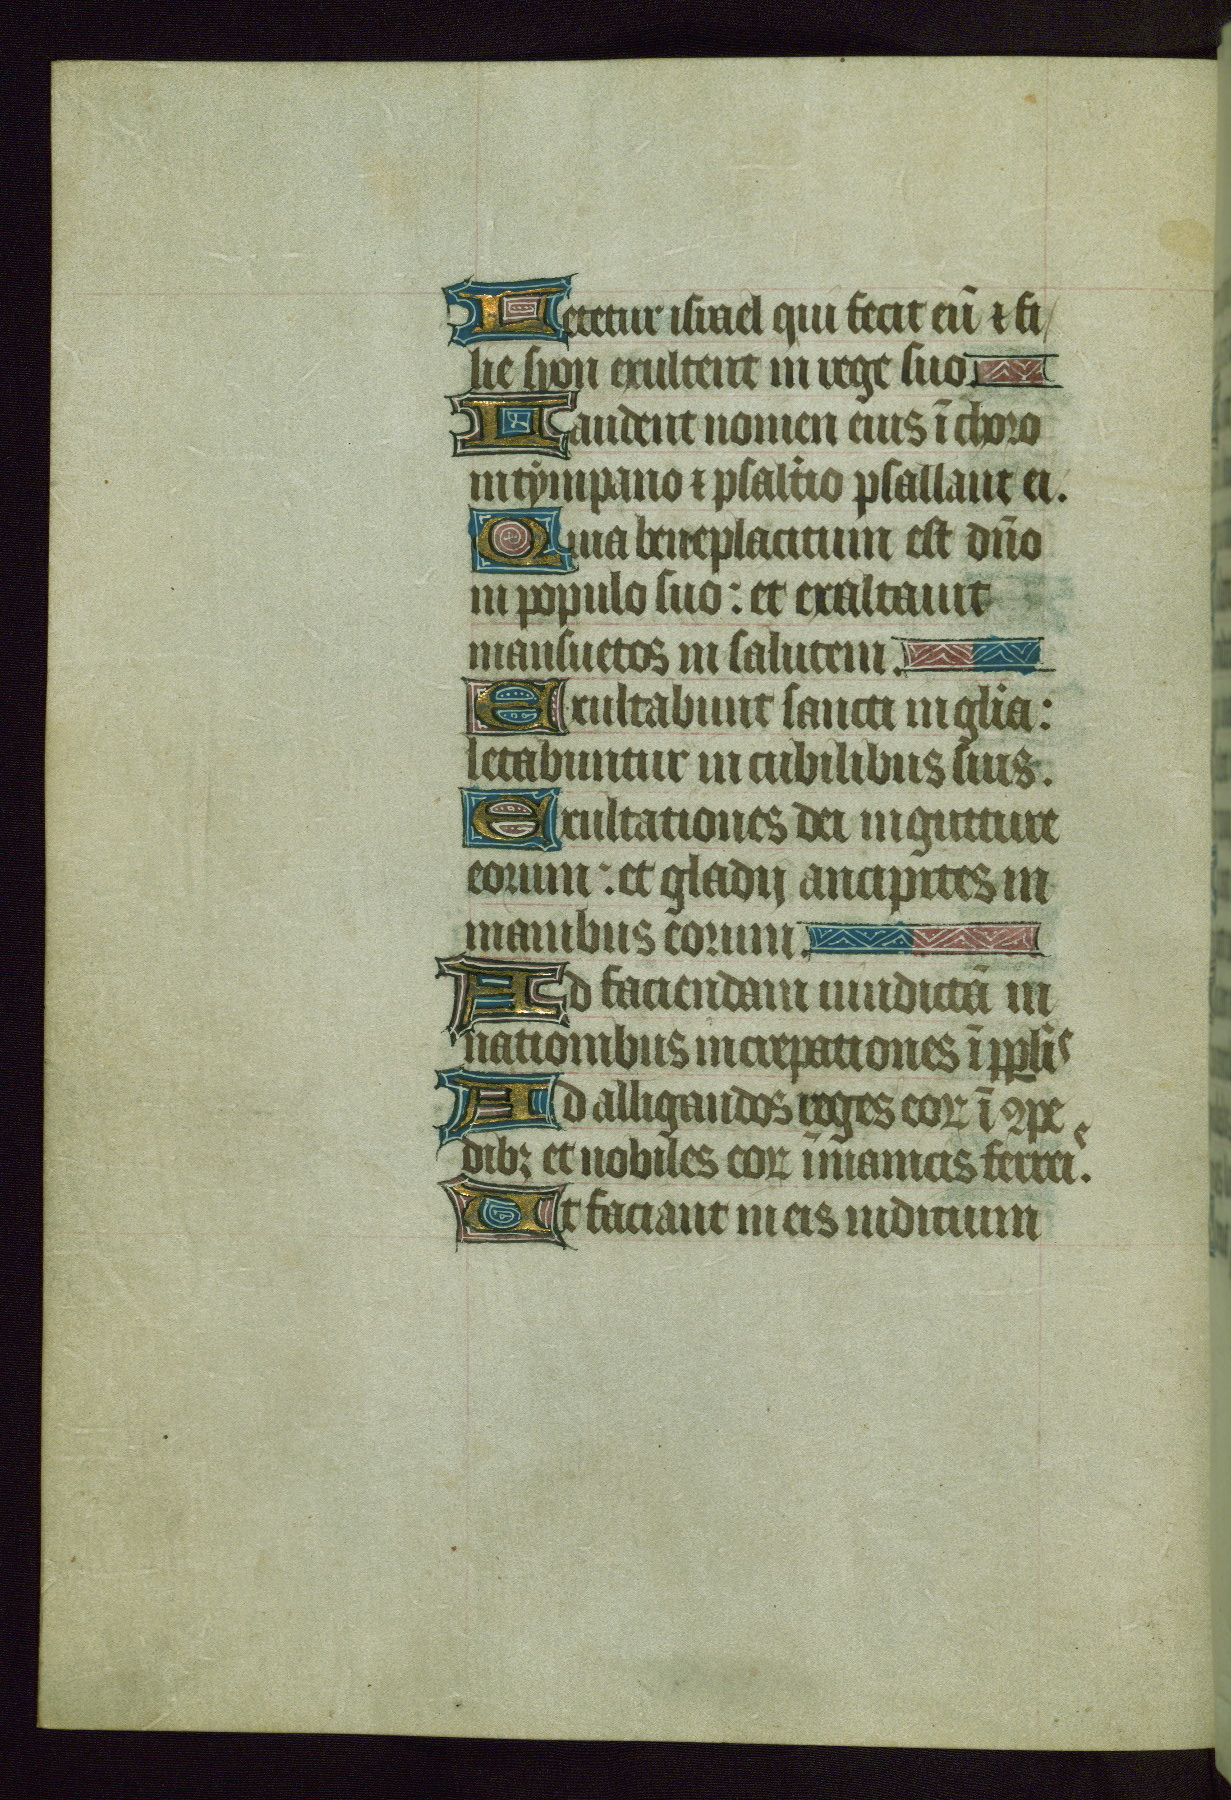 Letetur israel qui fecit eū ⁊ fi/
lie syon exultent in rege suo.
Laudent nomen eius ī choro
in tympano ⁊ psalt̄io psallant ei.
Quia beneplacitum est dn̄o
in populo suo: et exaltauit
mansuetos in salutem.
Exultabunt sancti in glīa:
letabuntur in cubilibus suis.
Exultationes dei in gutture
eorum: et gladij ancipites in
manibus eorum.
Ad faciendam uindictā in
nationibus increpationes ī ppl̄is
Ad alligandos reges eoꝝ ī ꝯpe
dibꝫ et nobiles eoꝝ ī manicis ferreis.
Ut faciant in eis iudicium